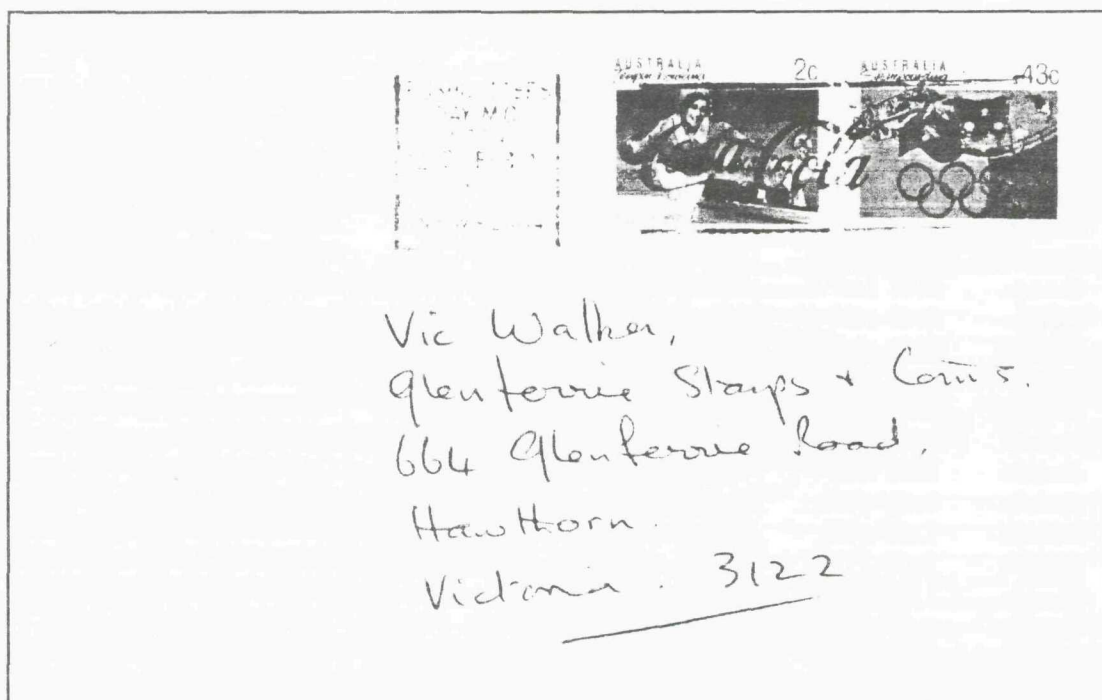 AUSTRALIA 2c
AUSTRALIA 43c
Vic Walker,
Glenferrie Stamps + Coins.
664 Glenferrie Road,
Hawthorn.
Victoria. 3122